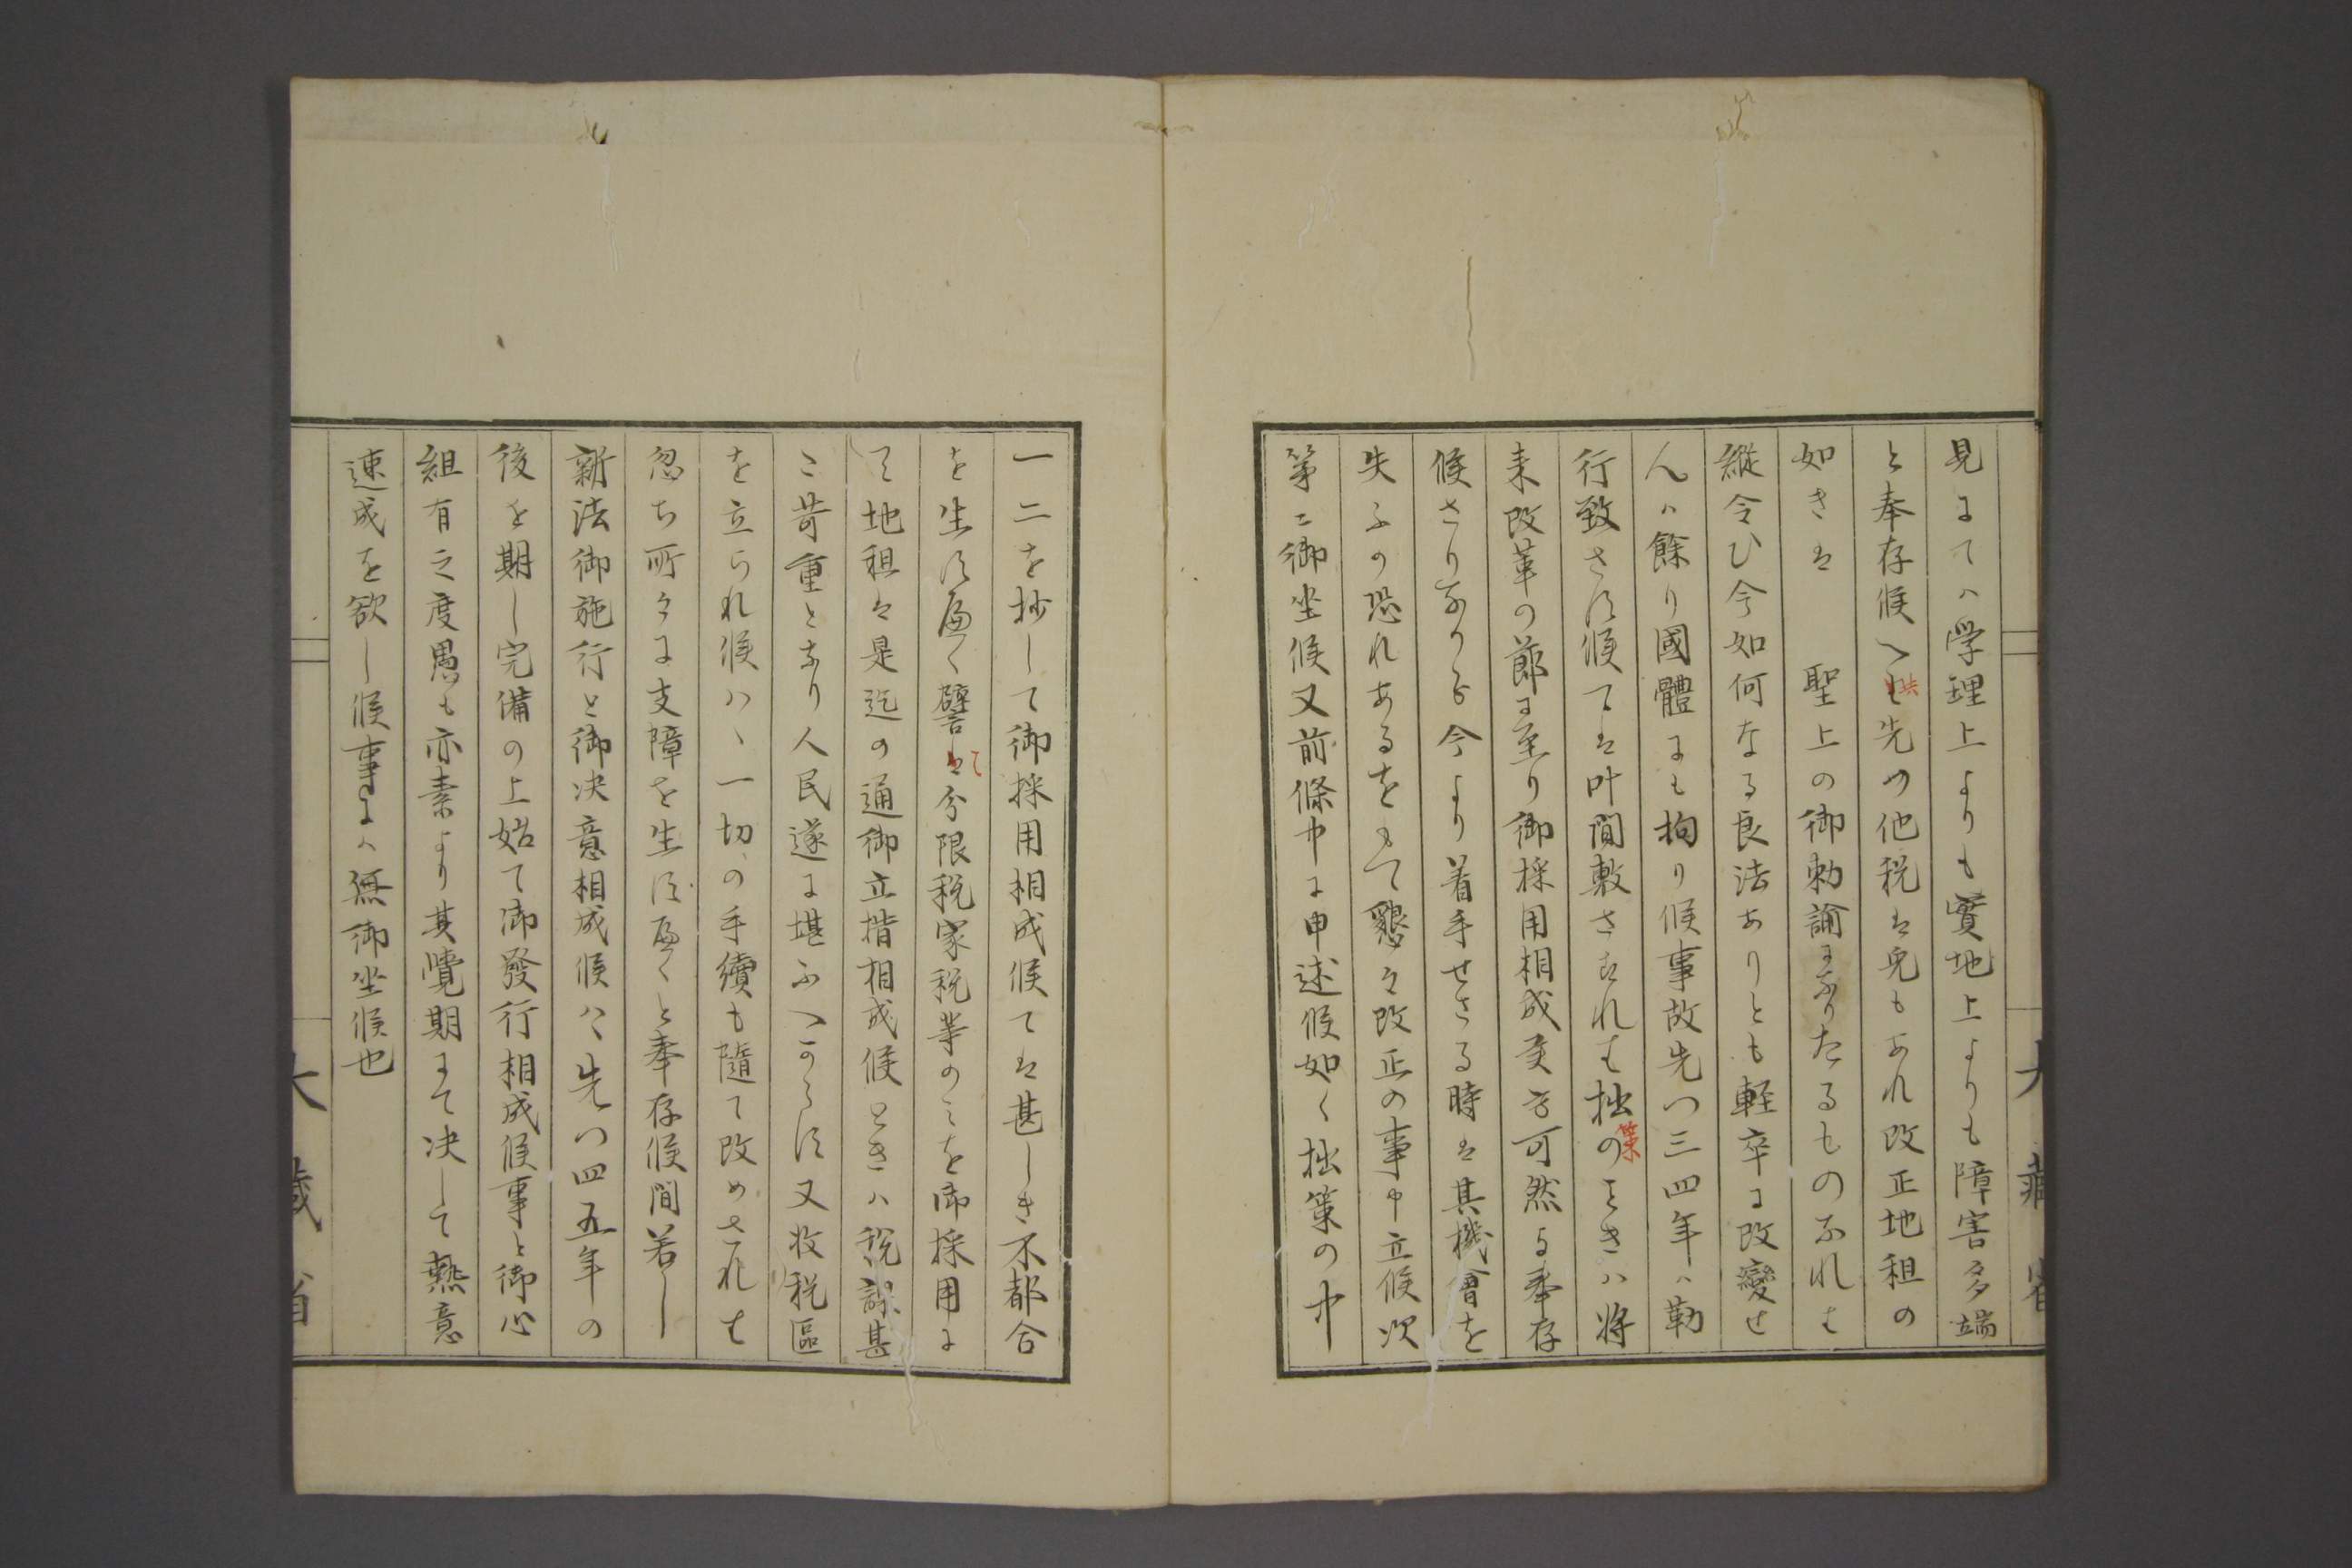 見にてハ学理上よりも實地上よりも障害多端
と奉存候へ共先つ他税は兎もあれ改正地租の
如きは　聖上の御勅諭に云りたるものなれは
縦令ひ今如何なる良法ありとも軽卒に改變せ
んハ餘り國體にも拘り候事故先つ三四年ハ勒
行致さす候ては叶間敷されは拙策のときハ将
来改革の節に至り御採用相成候方可然と奉存
候さりなから今より着手せさる時は其機會を
失ふの恐れあるをもて懇々改正の事申立候次
第ニ御坐候又前條中に申述候如く拙策の中
一二を抄して御採用相成候ては甚しき不都合
を生す屁く譬は分限税家税等のミを御採用に
て地租は是迄の通御立措相成候ときハ税課甚
た苛重となり人民遂に堪ふへからす又收税區
を立られ候ハヽ一切の手續も隨て改めされは
忽ち所々に支障を生す屁くと奉存候間若し
新法御施行と御決意相成候ハヽ先つ四五年の
後を期し完備の上始て御發行相成候事と御心
組有之度愚も亦素より其覺期にて决して熱意
速成を欲し候事にハ無御坐候也
大藏省
大藏省